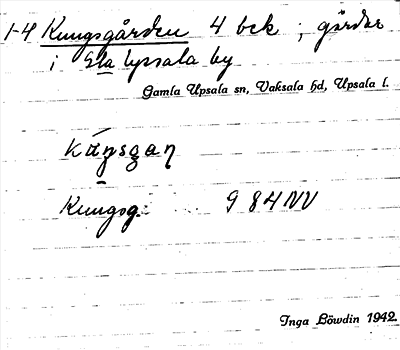 1-4 Kungsgården 4 bek ; gårdar
i Gla Upsala by
Gamla Upsala sn, Vaksala hd, Upsala l.
Kungsg. 984NV
Inga Löwdin 1942.